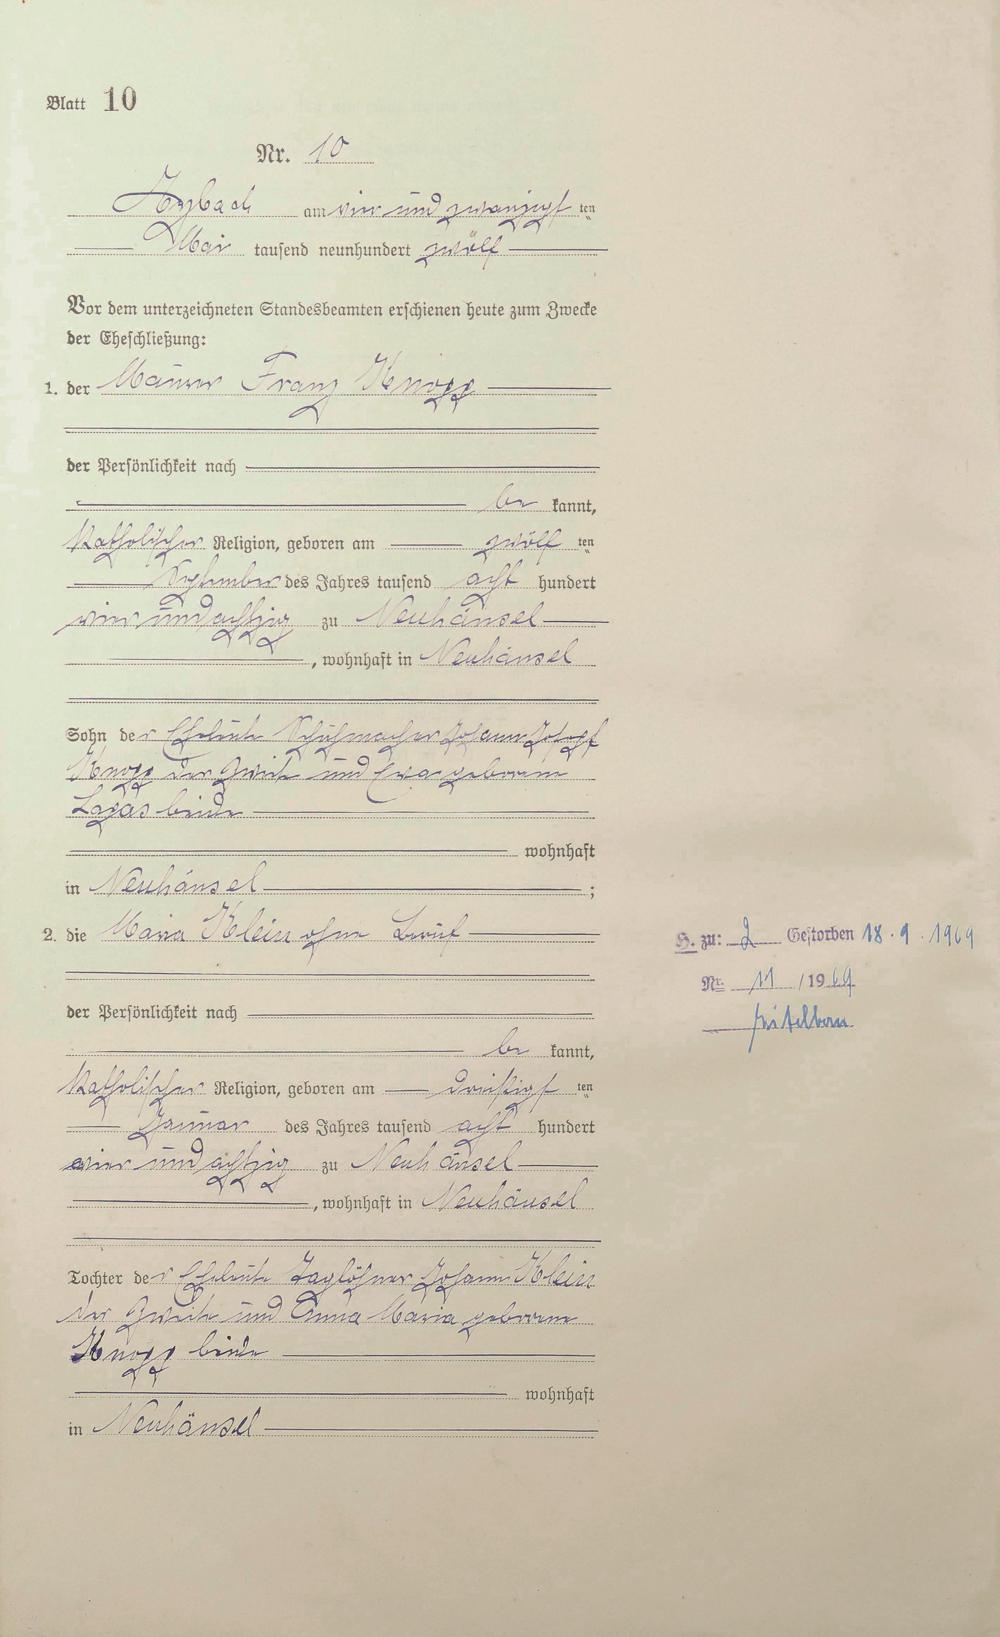 Blatt 10
Nr. 10
Arzbach am vier und zwanzigst ten
Mai tausend neunhundert zwölf
Vor dem unterzeichneten Standesbeamten erschienen heute zum Zwecke
der Eheschließung:
1. der Maurer Franz Knopp
der Persönlichkeit nach
be kannt,
katholischer Religion, geboren am zwölf ten
September des Jahres tausend acht hundert
vier und achtzig zu Neuhäusel
, wohnhaft in Neuhäusel
Sohn der Eheleute Schuhmacher Johann Joseph
Knopp der Zweite und Eva geborene
beide
wohnhaft
in Neuhäusel ;
2. die Maria Klein ohne Beruf
der Persönlichkeit nach
be kannt,
katholischer Religion, geboren am dreißigst ten
Januar des Jahres tausend acht hundert
vier und achtzig zu Neuhäusel
, wohnhaft in Neuhäusel
Tochter der Eheleute Taglöhner Johann Klein
der Zweite und Anna Maria geborene
Knopp beide
wohnhaft
in Neuhäusel
H. zu: 2 Gestorben 18.9.1969
Nr. 11 /1969